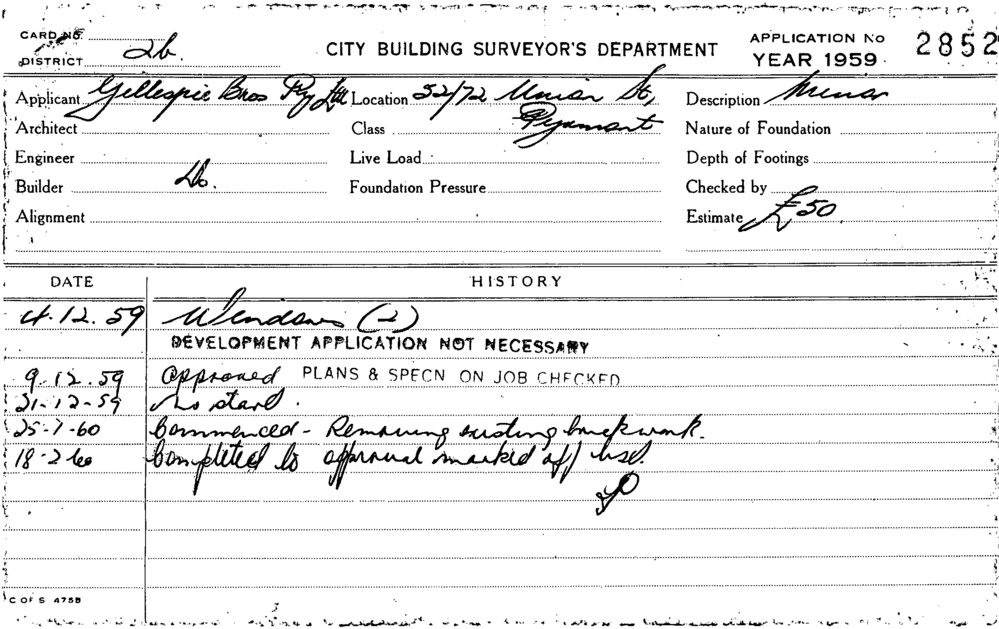 CARD No. CITY BUILDING SURVEYOR'S DEPARTMENT APPLICATION No 2852
DISTRICT 2b. YEAR 1959
Applicant Gillespie Bros Pty Ltd Location 52/72 Union St, Description Minor
Architect Class Pyrmont Nature of Foundation
Engineer Live Load Depth of Footings
Builder Do. Foundation Pressure Checked by
Alignment Estimate £50.
DATE HISTORY
4.12.59 Windows (2)
DEVELOPMENT APPLICATION NOT NECESSARY
9.12.59 Approved PLANS & SPECN ON JOB CHECKED
21-12-59 No start.
25-1-60 Commenced - Removing existing brickwork.
18-2 60 Completed to approval marked off
C OF S 475B